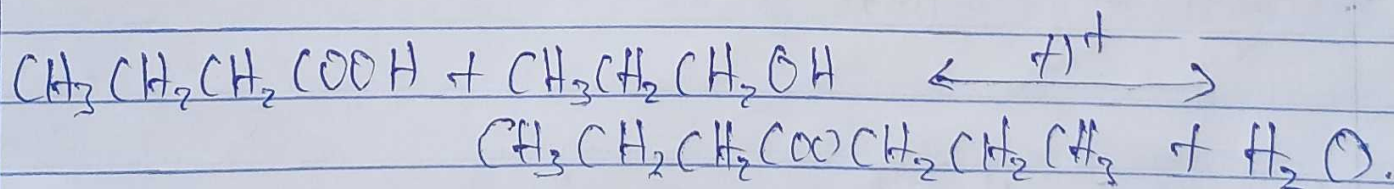 CH₃CH₂CH₂COOH + CH₃CH₂CH₂OH ⟷ H⁺
CH₃CH₂CH₂COOCH₂CH₂CH₃ + H₂O.